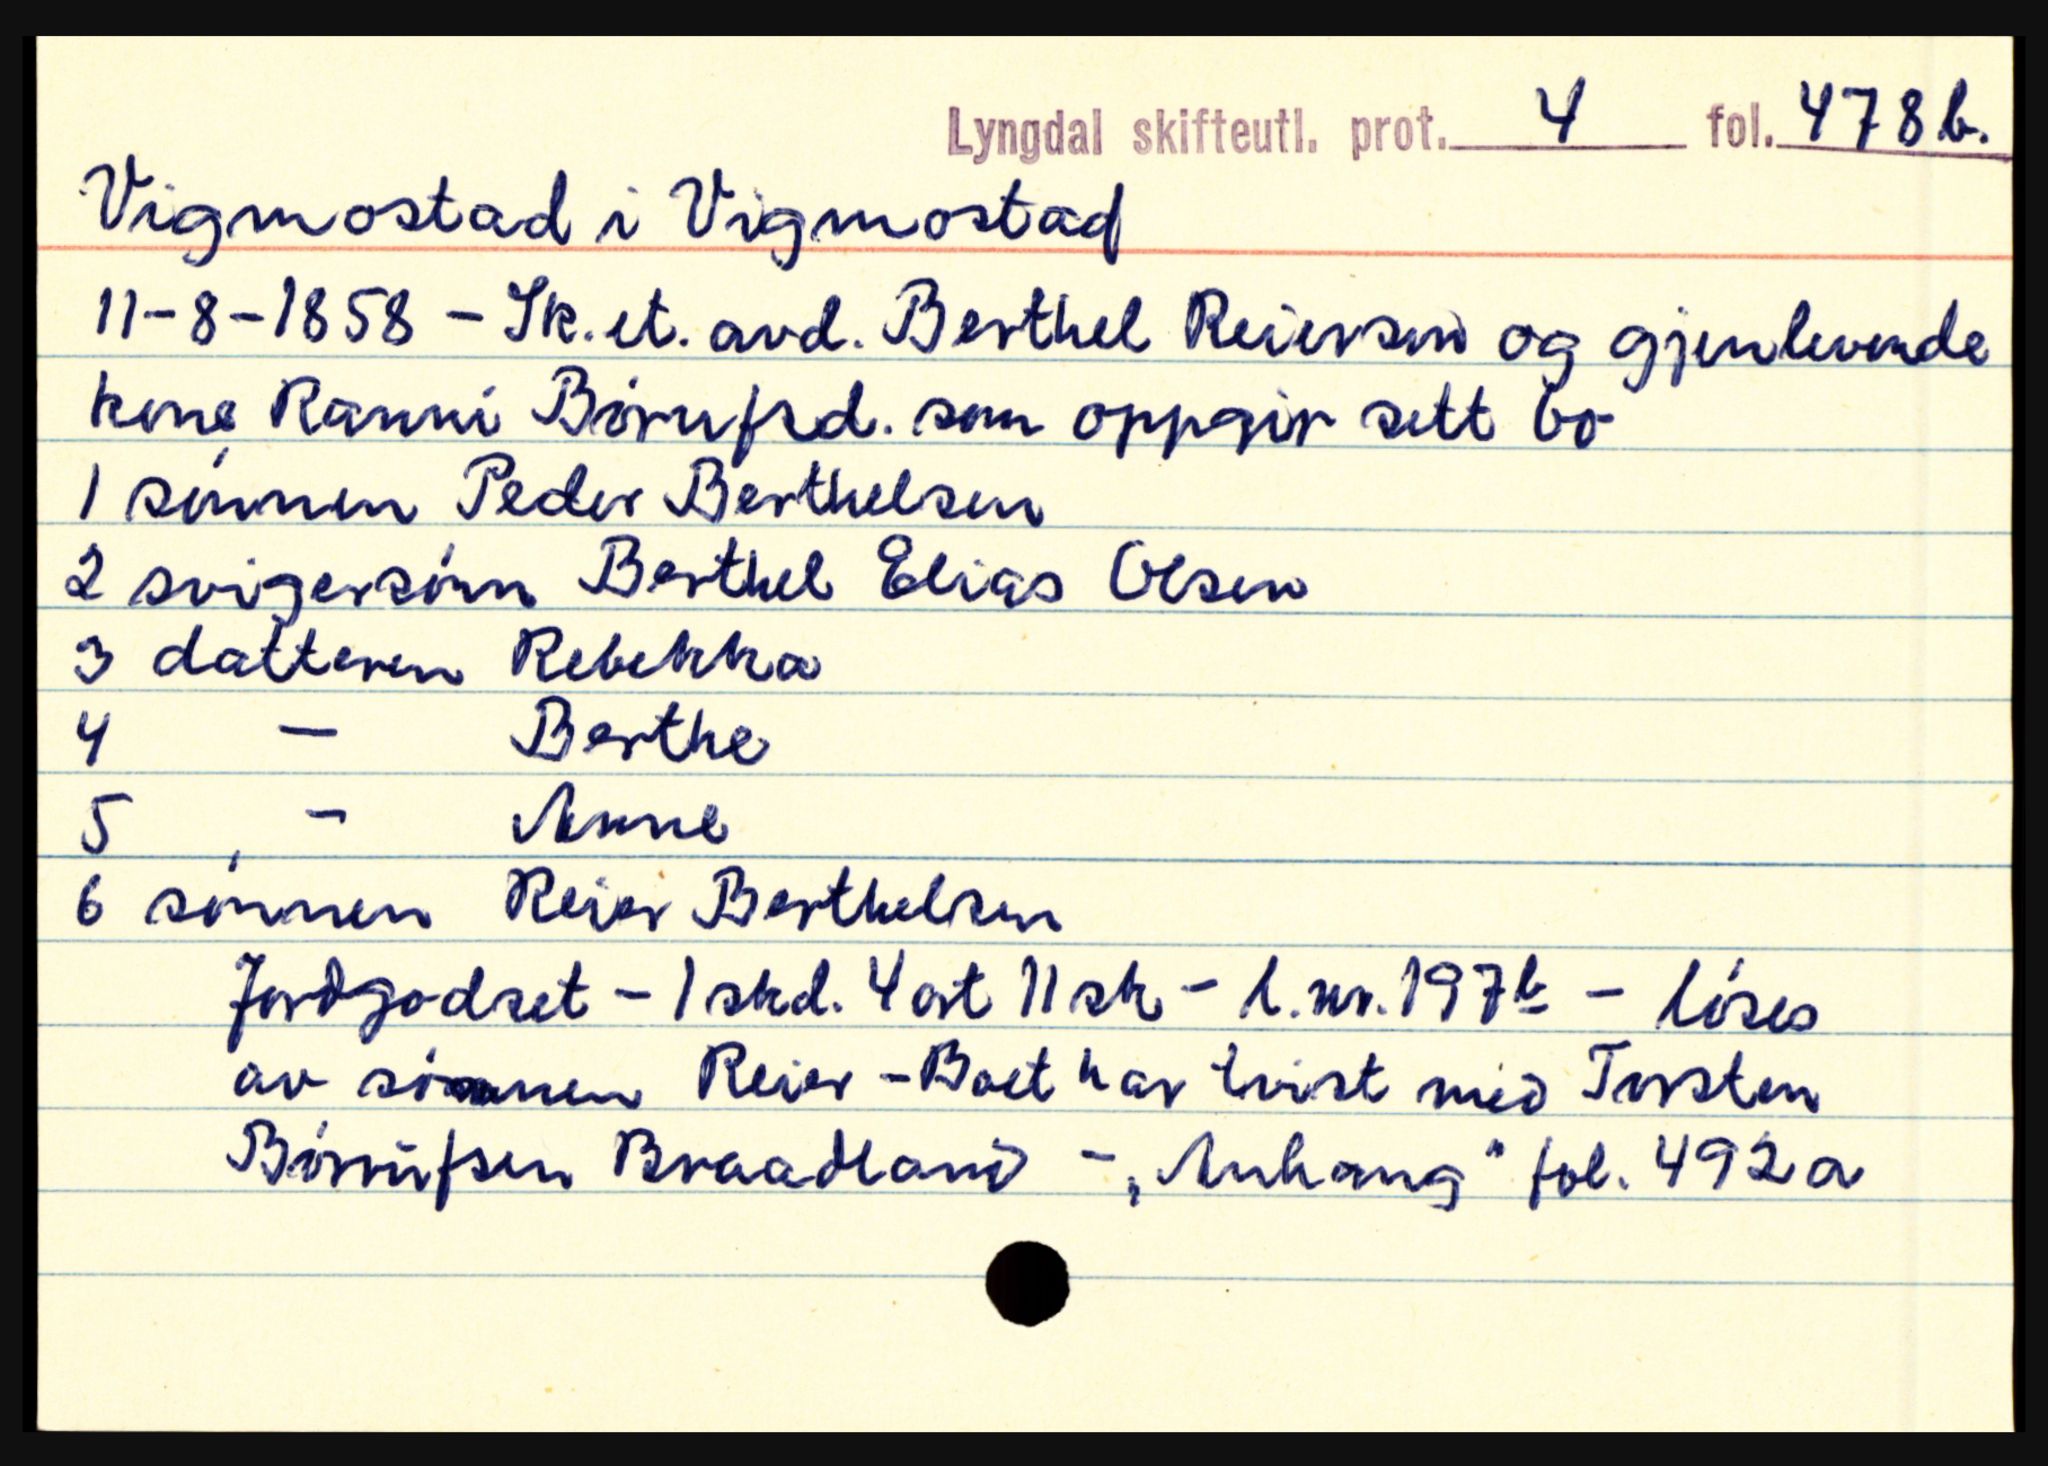 Lyngdal skifteutl. prot. 4 fol. 478 b.
Vigmostad i Vigmostad
11-8-1858 - Sk. et. avd. Berthel Reiersen og gjenlevende
kone Ranni Børufsd. som oppgir sitt bo
1 sønnen Peder Berthelsen
2 svigersønn Berthel Elias Olsen
3 datteren Rebekka
4 - Berthe
5 - Anne
6 sønnen Reier Berthelsen
Jordgodset - 1 skd. 4 ort 11 sk - l.nr. 197b - løses
av sønnen Reier - Boet har tvist med Torsten
Børrufsen Braadland - „Anhang" fol. 492 a